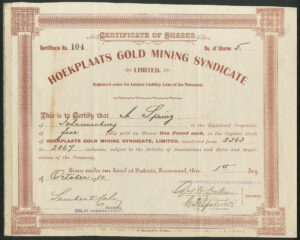 CERTIFICATE OF SHARES.
Certificate No. 104
No. of Shares 5
HOEKPLAATS GOLD MINING SYNDICATE
LIMITED.
Registered under the Limited Liability Laws of the Transvaal.
This is to Certify that
of Johannesburg is the Registered Proprietor
of five fully paid up Shares One Pound each, in the Capital Stock
of HOEKPLAATS GOLD MINING SYNDICATE, LIMITED, numbered from 2363
to 2367 inclusive, subject to the Articles of Association and Rules and Regu-
lations of the Company.
Given under our hand at Pretoria, Transvaal, this 1st day
of October